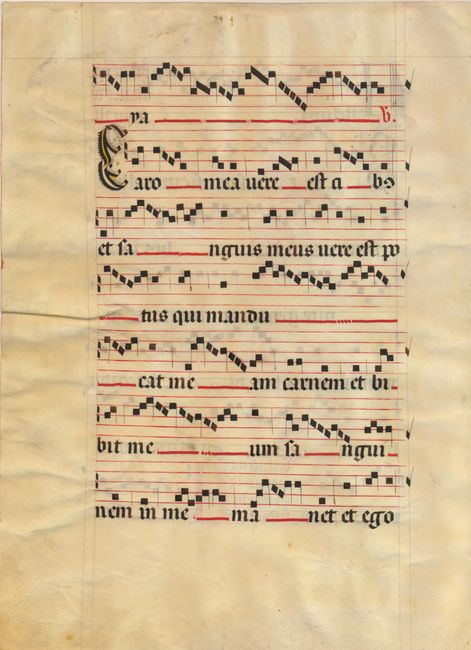 ya V.
Caro mea vere est ci bꝰ
et sa nguis meus vere est po
tus qui mandu
cat me am carnem et bi
bit me um sa ngui
nem in me ma net et ego